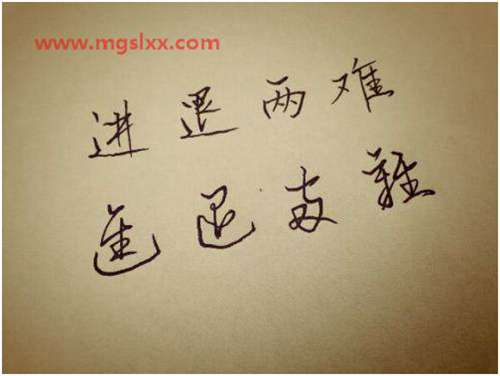 www.mgslxx.com
进退两难
進退両難